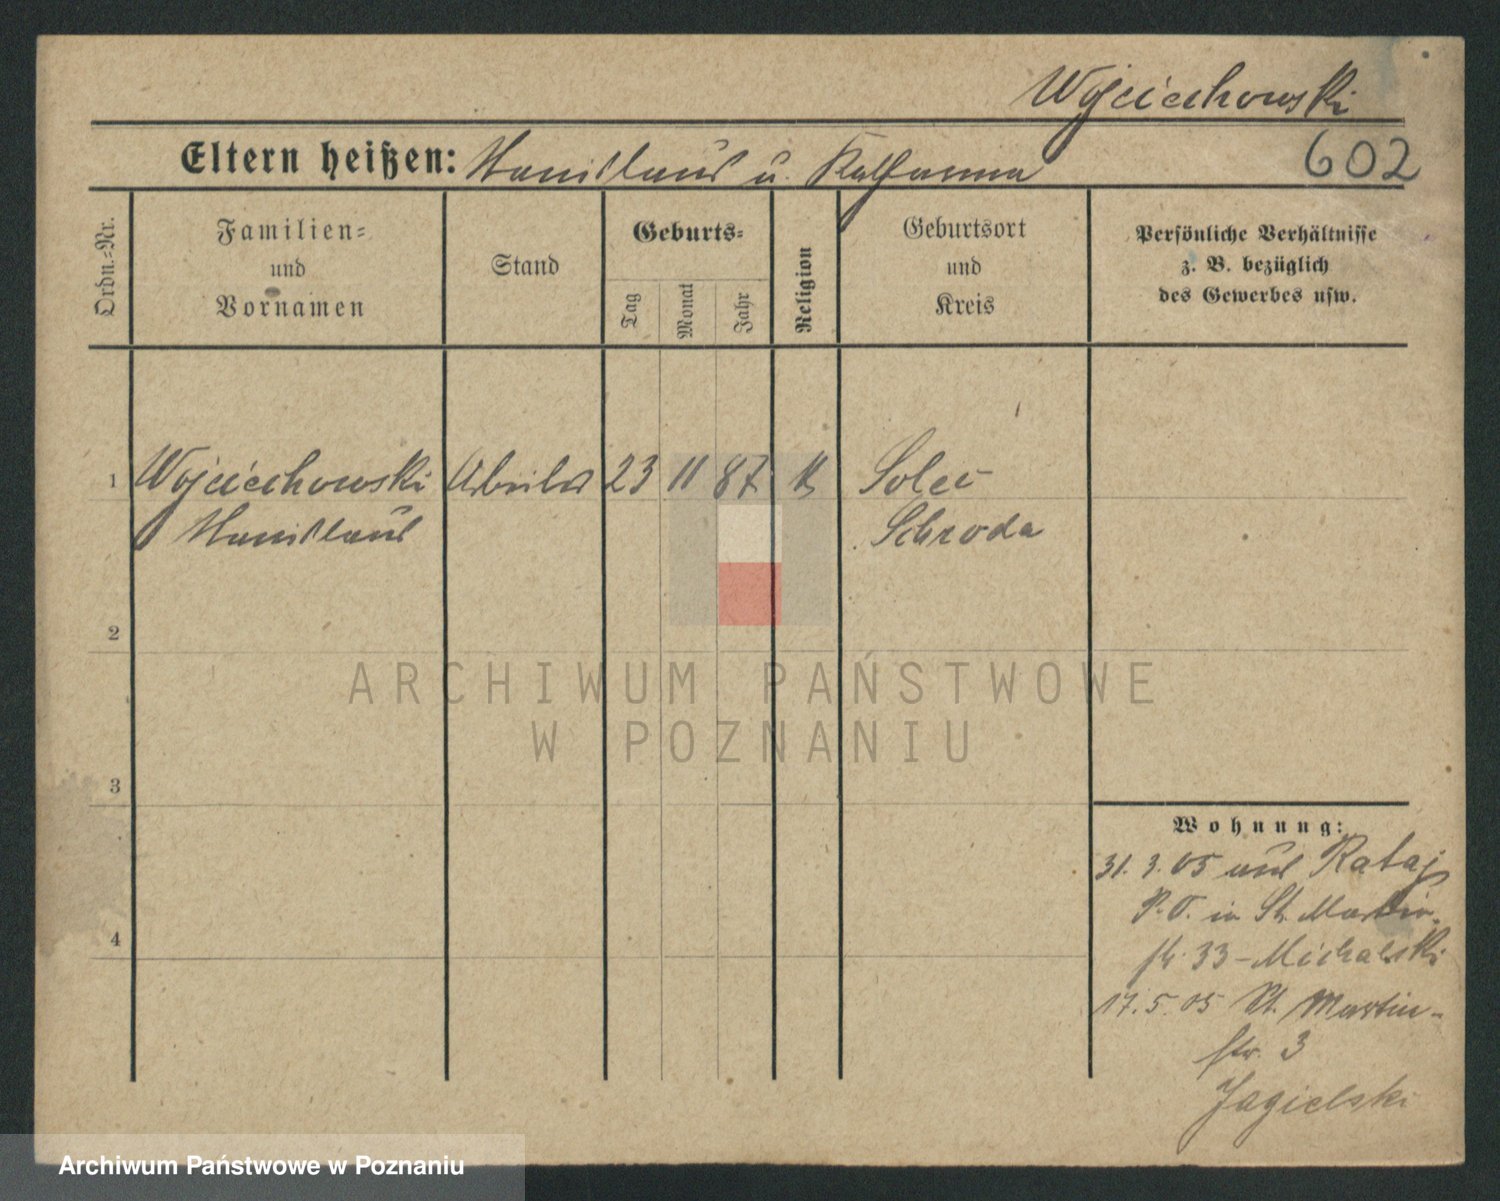 Wojciechowski
602
Eltern heißen: Stanislaus u. Katharina
Ordn.-Nr.
Familien-
und
Vornamen
Stand
Geburts-
Tag
Monat
Jahr
Religion
Geburtsort
und
Kreis
Persönliche Verhältnisse
z. B. bezüglich
des Gewerbes usw.
1 Wojciechowski Arbeiter 23 11 87 K Solec
Stanislaus Schroda
2
3
4
ARCHIWUM PAŃSTWOWE
W POZNANIU
Wohnung:
31. 3. 05 aus Rataj
P. O. in St. Martin-
str 33 - Michalski
17. 5. 05 St. Martin-
str. 3
Jagielski
Archiwum Państwowe w Poznaniu